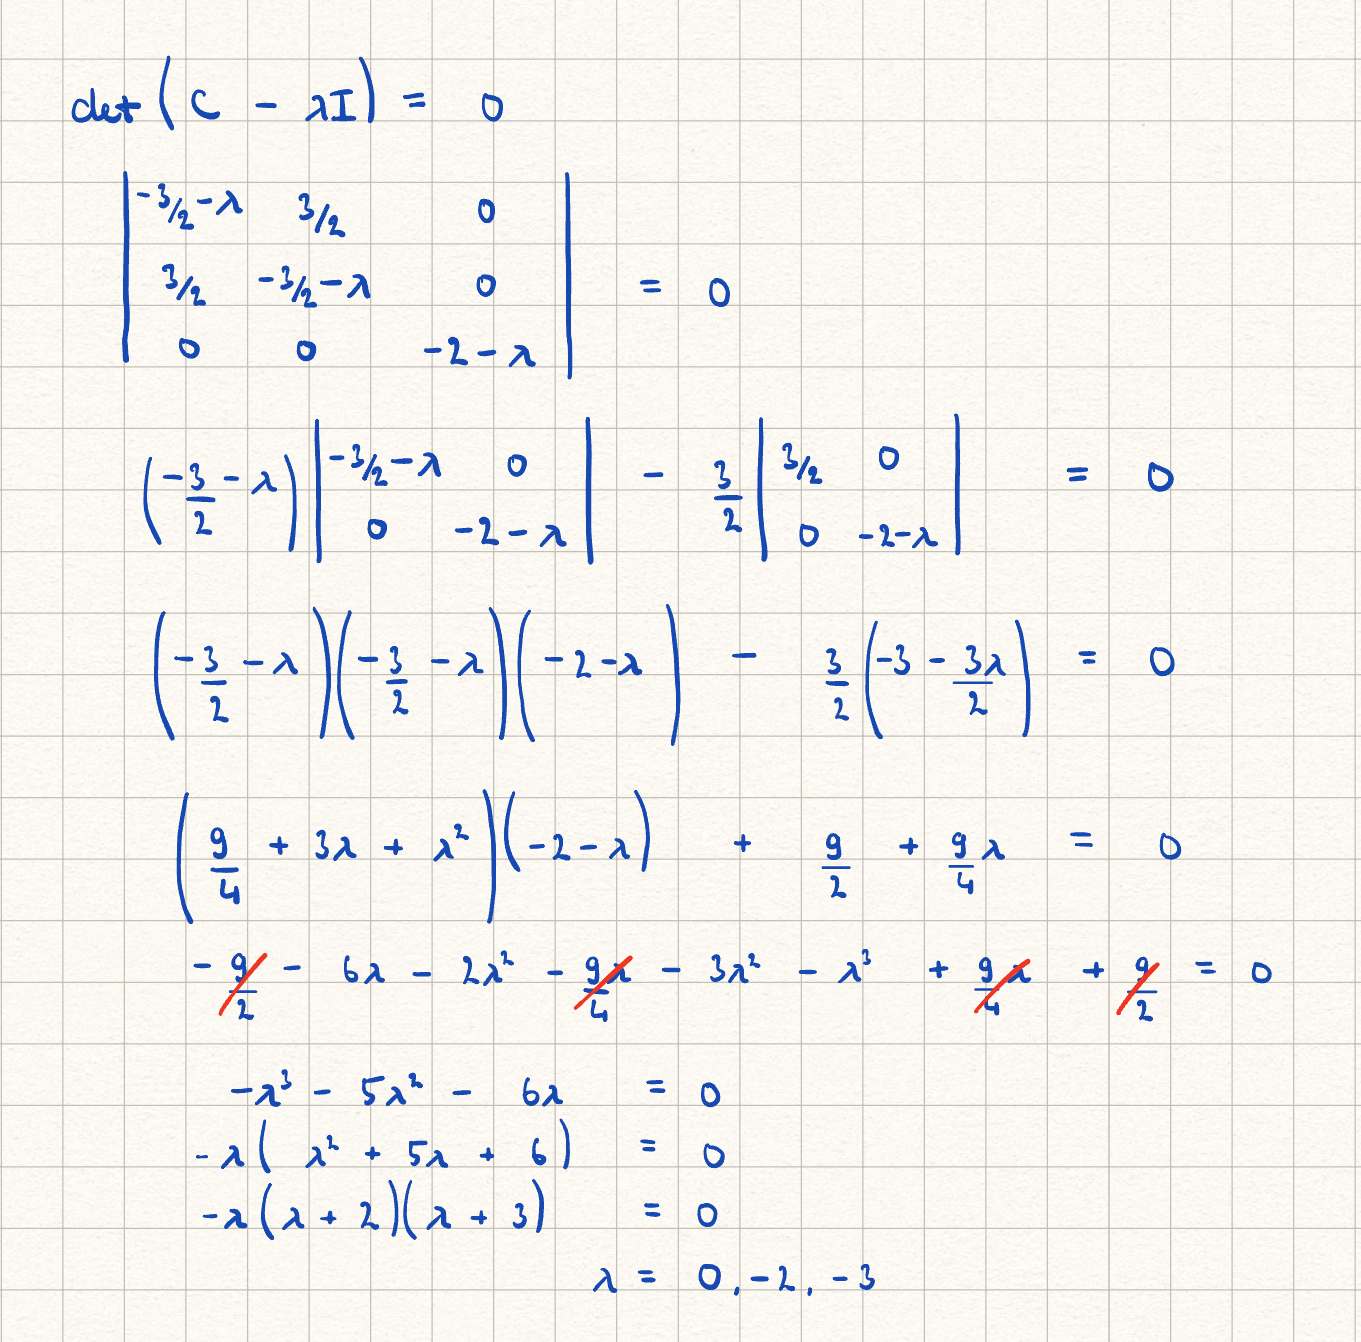 det(C - λI) = 0
| -3/2-λ 3/2 0 |
| 3/2 -3/2-λ 0 | = 0
| 0 0 -2-λ |
(-3/2 - λ) | -3/2-λ 0 ; 0 -2-λ | - 3/2 | 3/2 0 ; 0 -2-λ | = 0
(-3/2 - λ)(-3/2 - λ)(-2-λ) - 3/2(-3 - 3λ/2) = 0
(9/4 + 3λ + λ²)(-2-λ) + 9/2 + 9/4 λ = 0
- 9/2 - 6λ - 2λ² - 9/4 λ - 3λ² - λ³ + 9/4 λ + 9/2 = 0
-λ³ - 5λ² - 6λ = 0
-λ(λ² + 5λ + 6) = 0
-λ(λ + 2)(λ + 3) = 0
λ = 0, -2, -3